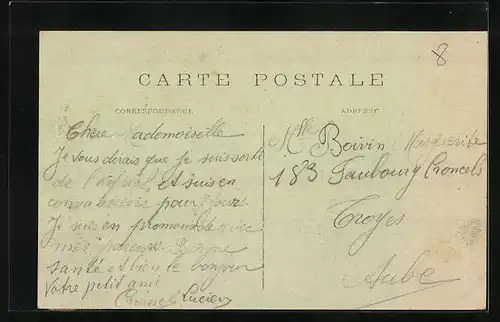 8
CARTE POSTALE
CORRESPONDANCE
ADRESSE
Chère Mademoiselle
Je vous dirais que je suis sorti
de l'hôpital, et suis en
pour
Je suis en promenade avec
mes parents
santé et bien le bonjour
Votre petit ami
Lucien
Mlle Boivin Marguerite
183 Faubourg Croncels
Troyes
Aube